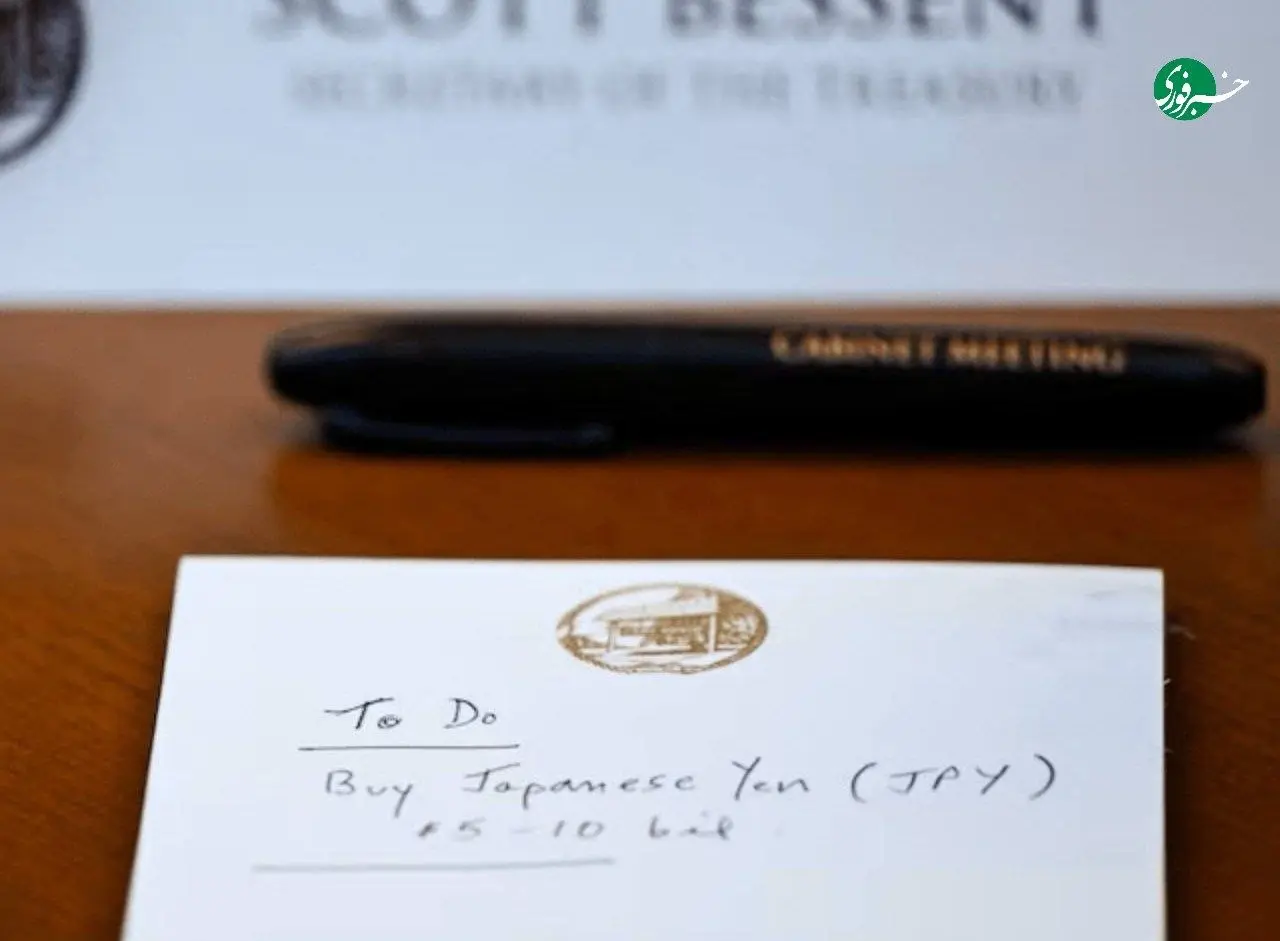 SCOTT BESSENT
SECRETARY OF THE TREASURY
خبرفوری
CABINET MEETING
To Do
Buy Japanese Yen (JPY)
$5-10 bil